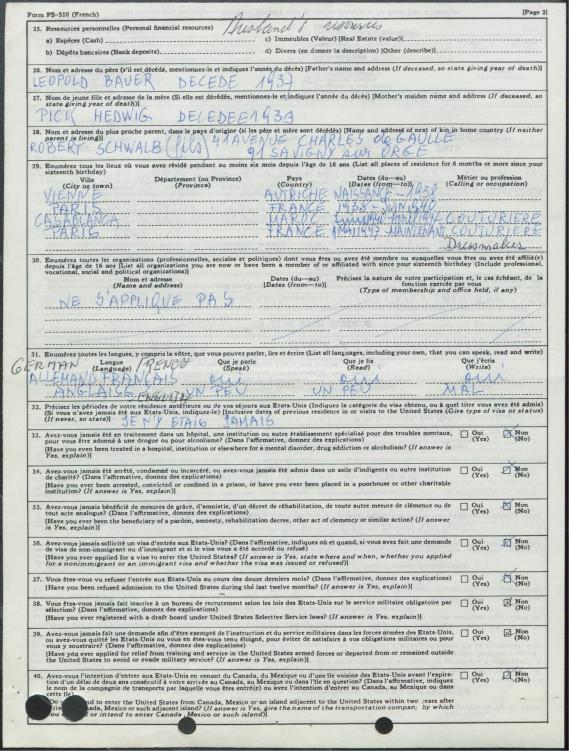 Form FS-510 (French) [Page 2]
25. Ressources personnelles (Personal financial resources) Husband's resources
a) Espèces (Cash) c) Immeubles (Valeur) [Real Estate (value)]
b) Dépôts bancaires (Bank deposits) d) Divers (en donner la description) [Other (describe)]
26. Nom et adresse du père (s'il est décédé, mentionnez-le et indiquez l'année du décès) [Father's name and address (If deceased, so state giving year of death)]
LEOPOLD BAUER DECEDE 1937
27. Nom de jeune fille et adresse de la mère (Si elle est décédée, mentionnez-le et indiquez l'année du décès) [Mother's maiden name and address (If deceased, so state giving year of death)]
PICK HEDWIG DECEDEE 1933
28. Nom et adresse du plus proche parent, dans le pays d'origine (si les père et mère sont décédés) [Name and address of next of kin in home country (If neither parent is living)]
ROBERT SCHWALB (fils) 41 AVENUE CHARLES de GAULLE
91 SAVIGNY sur ORGE
29. Enumérez tous les lieux où vous avez résidé pendant au moins six mois depuis l'âge de 16 ans (List all places of residence for 6 months or more since your sixteenth birthday)
Ville (City or town) Département (ou Province) (Province) Pays (Country) Dates (du—au) [Dates (from—to)] Métier ou profession (Calling or occupation)
VIENNE AUTRICHE NAISSANCE - 1938
PARIS FRANCE 1938 - JUIN 1940
CASABLANCA MAROC COUTURIERE
PARIS FRANCE 1947 - MAINTENANT COUTURIERE
Dressmaker
30. Enumérez toutes les organisations (professionnelles, sociales et politiques) dont vous êtes ou avez été membre ou auxquelles vous êtes ou avez été affilié(e) depuis l'âge de 16 ans [List all organizations you are now or have been a member of or affiliated with since your sixteenth birthday (Include professional, vocational, social and political organizations)]
Nom et adresse (Name and address) Dates (du—au) [Dates (from—to)] Précisez la nature de votre participation et, le cas échéant, de la fonction exercée par vous (Type of membership and office held, if any)
NE S'APPLIQUE PAS
31. Enumérez toutes les langues, y compris la vôtre, que vous pouvez parler, lire et écrire (List all languages, including your own, that you can speak, read and write)
GERMAN Langue (Language) / FRENCH Que je parle (Speak) Que je lis (Read) Que j'écris (Write)
ALLEMAND FRANCAIS oui oui oui
ANGLAISE ENGLISH UN PEU UN PEU MAL
32. Précisez les périodes de votre résidence antérieure ou de vos séjours aux Etats-Unis (Indiquez la catégorie du visa obtenu, ou à quel titre vous avez été admis) (Si vous n'avez jamais été aux Etats-Unis, indiquez-le) [Inclusive dates of previous residence in or visits to the United States (Give type of visa or status) (If never, so state)]
JE N'Y ETAIS JAMAIS
33. Avez-vous jamais été en traitement dans un hôpital, une institution ou autre établissement spécialisé pour des troubles mentaux, pour vous être adonné à une drogue ou pour alcoolisme? (Dans l'affirmative, donnez des explications) Oui (Yes) Non (No)
[Have you ever been treated in a hospital, institution or elsewhere for a mental disorder, drug addiction or alcoholism? (If answer is Yes, explain)]
34. Avez-vous jamais été arrêté, condamné ou incarcéré, ou avez-vous jamais été admis dans un asile d'indigents ou autre institution de charité? (Dans l'affirmative, donnez des explications) Oui (Yes) Non (No)
[Have you ever been arrested, convicted or confined in a prison, or have you ever been placed in a poorhouse or other charitable institution? (If answer is Yes, explain)]
35. Avez-vous jamais bénéficié de mesures de grâce, d'amnistie, d'un décret de réhabilitation, de toute autre mesure de clémence ou de tout acte analogue? (Dans l'affirmative, donnez des explications) Oui (Yes) Non (No)
[Have you ever been the beneficiary of a pardon, amnesty, rehabilitation decree, other act of clemency or similar action? (If answer is Yes, explain)]
36. Avez-vous jamais sollicité un visa d'entrée aux Etats-Unis? (Dans l'affirmative, indiquez où et quand, si vous avez fait une demande de visa de non-immigrant ou d'immigrant et si le visa vous a été accordé ou refusé) Oui (Yes) Non (No)
[Have you ever applied for a visa to enter the United States? (If answer is Yes, state where and when, whether you applied for a nonimmigrant or an immigrant visa and whether the visa was issued or refused)]
37. Vous êtes-vous vu refuser l'entrée aux Etats-Unis au cours des douze derniers mois? (Dans l'affirmative, donnez des explications) Oui (Yes) Non (No)
[Have you been refused admission to the United States during the last twelve months? (If answer is Yes, explain)]
38. Vous êtes-vous jamais fait inscrire à un bureau de recrutement selon les lois des Etats-Unis sur le service militaire obligatoire par sélection? (Dans l'affirmative, donnez des explications) Oui (Yes) Non (No)
[Have you ever registered with a draft board under United States Selective Service laws? (If answer is Yes, explain)]
39. Avez-vous jamais fait une demande afin d'être exempté de l'instruction et du service militaires dans les forces armées des Etats-Unis, ou avez-vous quitté les Etats-Unis ou vous en êtes-vous tenu éloigné, pour éviter de satisfaire à vos obligations militaires ou pour vous y soustraire? (Dans l'affirmative, donnez des explications) Oui (Yes) Non (No)
[Have you ever applied for relief from training and service in the United States armed forces or departed from or remained outside the United States to avoid or evade military service? (If answer is Yes, explain)]
40. Avez-vous l'intention d'entrer aux Etats-Unis en venant du Canada, du Mexique ou d'une île voisine des Etats-Unis avant l'expiration d'un délai de deux ans consécutif à votre arrivée au Canada, au Mexique ou dans l'île en question? (Dans l'affirmative, indiquez le nom de la compagnie de transports par laquelle vous êtes entré(e) ou avez l'intention d'entrer au Canada, au Mexique ou dans cette île) Oui (Yes) Non (No)
to enter the United States from Canada, Mexico or an island adjacent to the United States within two years after Canada, Mexico or such adjacent island? (If answer is Yes, give the name of the transportation company by which or intend to enter Canada, Mexico or such island)]